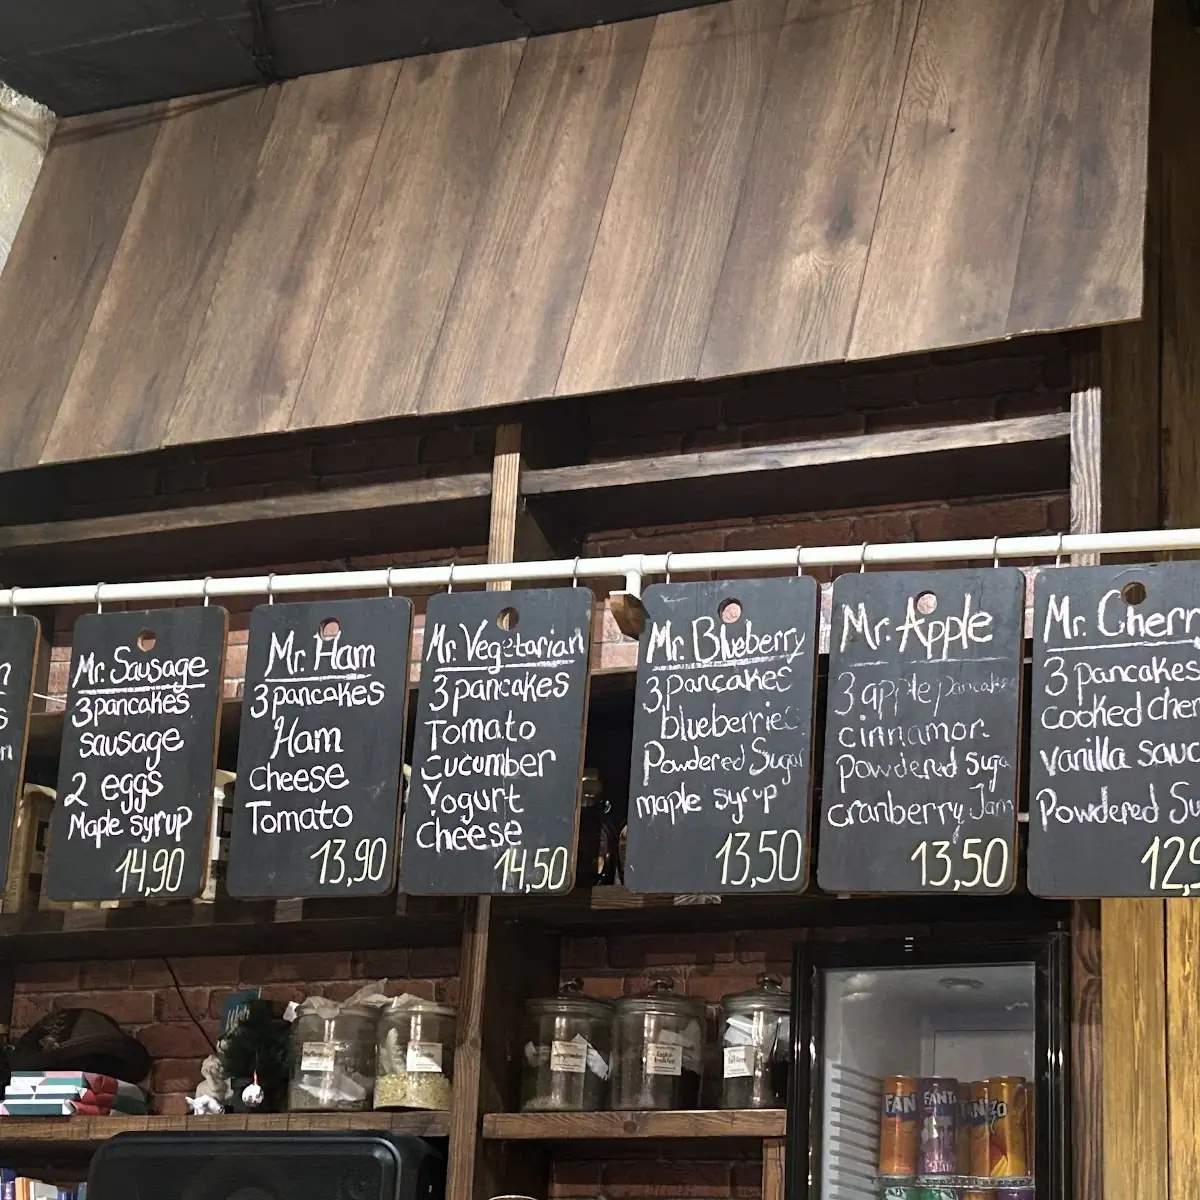 Mr. Sausage
3 pancakes
sausage
2 eggs
Maple syrup
14,90
Mr. Ham
3 pancakes
Ham
cheese
Tomato
13,90
Mr. Vegetarian
3 pancakes
Tomato
cucumber
Yogurt
cheese
14,50
Mr. Blueberry
3 pancakes
blueberries
Powdered Sugar
maple syrup
13,50
Mr. Apple
3 apple pancakes
cinnamon
powdered suga
cranberry Jam
13,50
Mr. Cherr
3 pancakes
cooked cher
vanilla sauc
Powdered Su
12,9
FAN
FANT